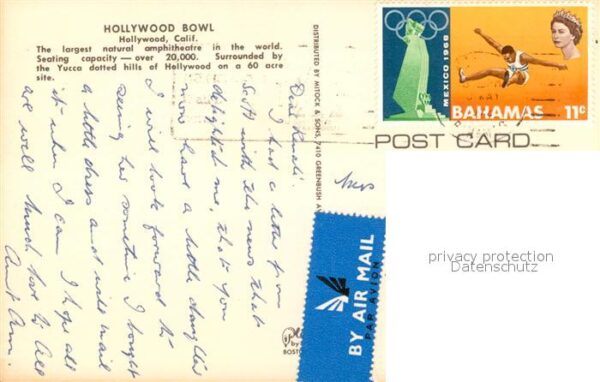 HOLLYWOOD BOWL
Hollywood, Calif.
The largest natural amphitheatre in the world.
Seating capacity — over 20,000. Surrounded by
the Yucca dotted hills of Hollywood on a 60 acre
site.
DISTRIBUTED BY MITOCK & SONS, 7410 GREENBUSH
MEXICO 1968
BAHAMAS 11c
POST CARD
Dear
I had a letter from
Scott with the news that
delighted me, that you
now have a little daughter
I will look forward to
seeing her sometime I bought
a little dress and will mail
it when I can I hope all
are well Much love to all
Aunt Ann.
Mrs
BY AIR MAIL
PAR AVION
by
BOSTO
privacy protection
Datenschutz